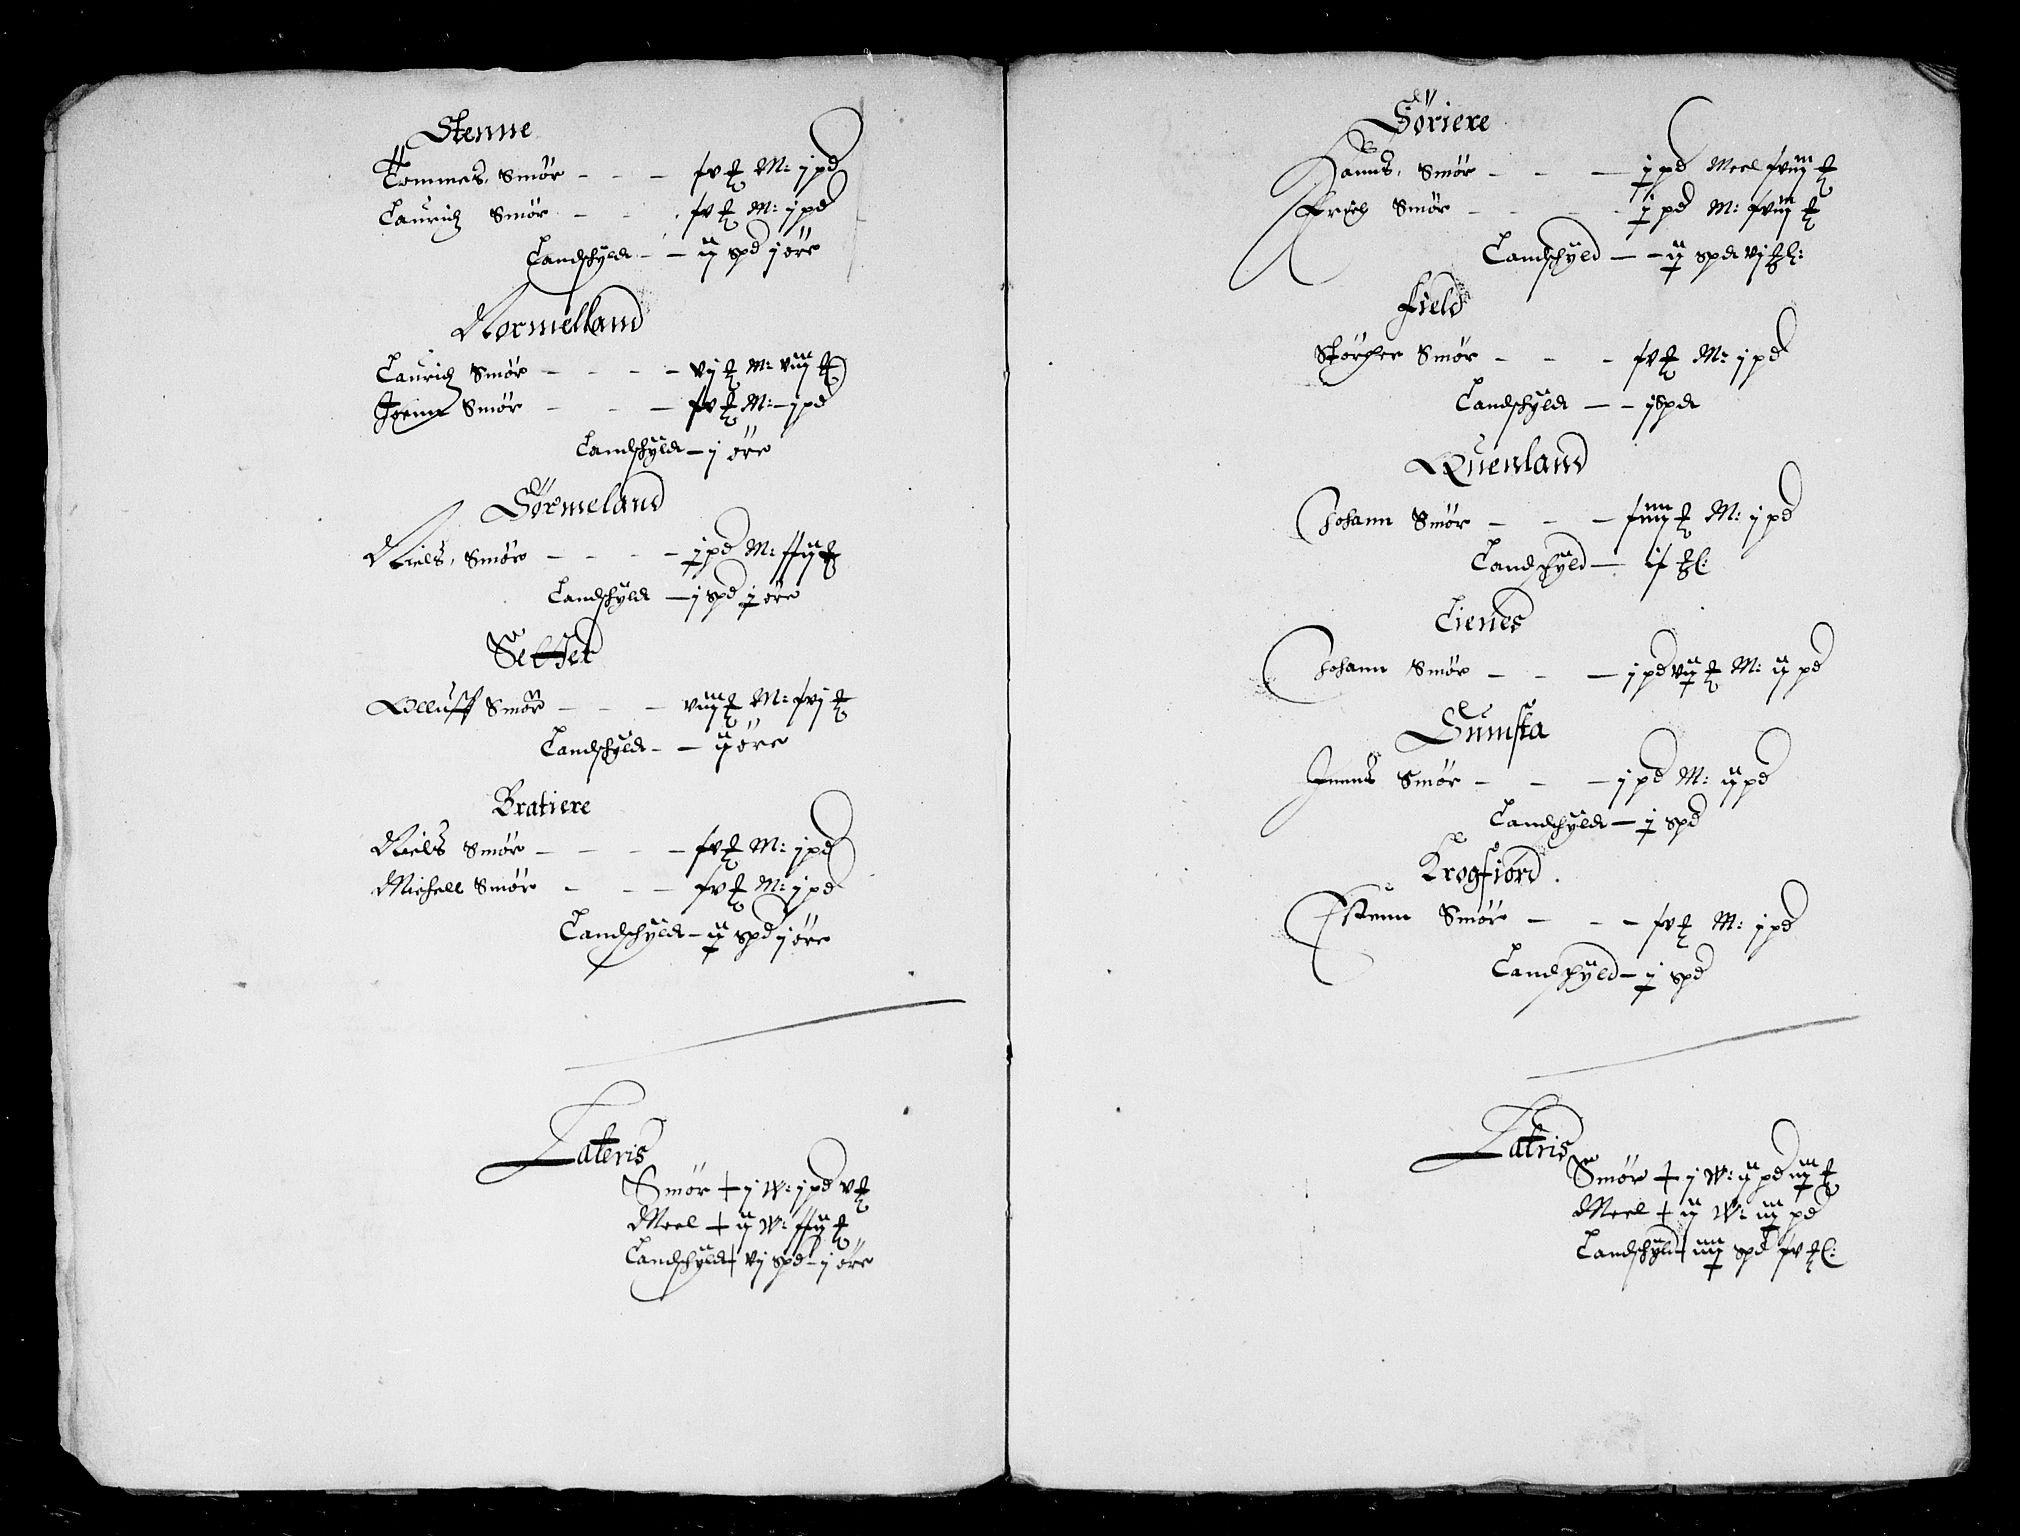 Stenne
Tommes, Smör - - - xv ℔ M: j pd
Lauridz Smör - - - xv ℔ M: j pd
Landschyld - - ij spd j öre
Normelland
Lauridz Smör - - - - vj ℔ M: viij ℔
Joenn Smör - - - xv ℔ M: - j pd
Landschyld - j öre
Sörmeland
Niels, Smör - - - - j pd M: xxij ℔
Landschyld - j spd j öre
Setter
Olluff Smör - - - viij ℔ M: xvj ℔
Landschyld - - ij öre
Bratiere
Niels Smör - - - - xv ℔ M: j pd
Michell Smör - - - xv ℔ M: j pd
Landschyld - ij spd j öre
Lateris
Smör + j W: j pd v ℔
Meel + ij W: xxij ℔
Landschyld + vj spd - j öre
Söriere
Hanns, Smör - - - j pd Meel xviij ℔
Erich Smör - - - - j pd M: xviij ℔
Landschyld - - ij spd vj
Field
Störcher Smör - - - xv ℔ M: j pd
Landschyld - - j spd
Quenland
Johann Smör - - - xiiij ℔ M: j pd
Landschyld -
Lienes
Johann Smör - - - j pd vij ℔ M: ij pd
Sumsta
Jenns Smör - - - j pd M: ij pd
Landschyld - j spd
Krogfiord.
Estenn Smör - - - xv ℔ M: j pd
Landschyld - j spd
Latris
Smör + j W: ij pd iij ℔
Meel + ij W: iij pd
Landschyld + iiij spd xv